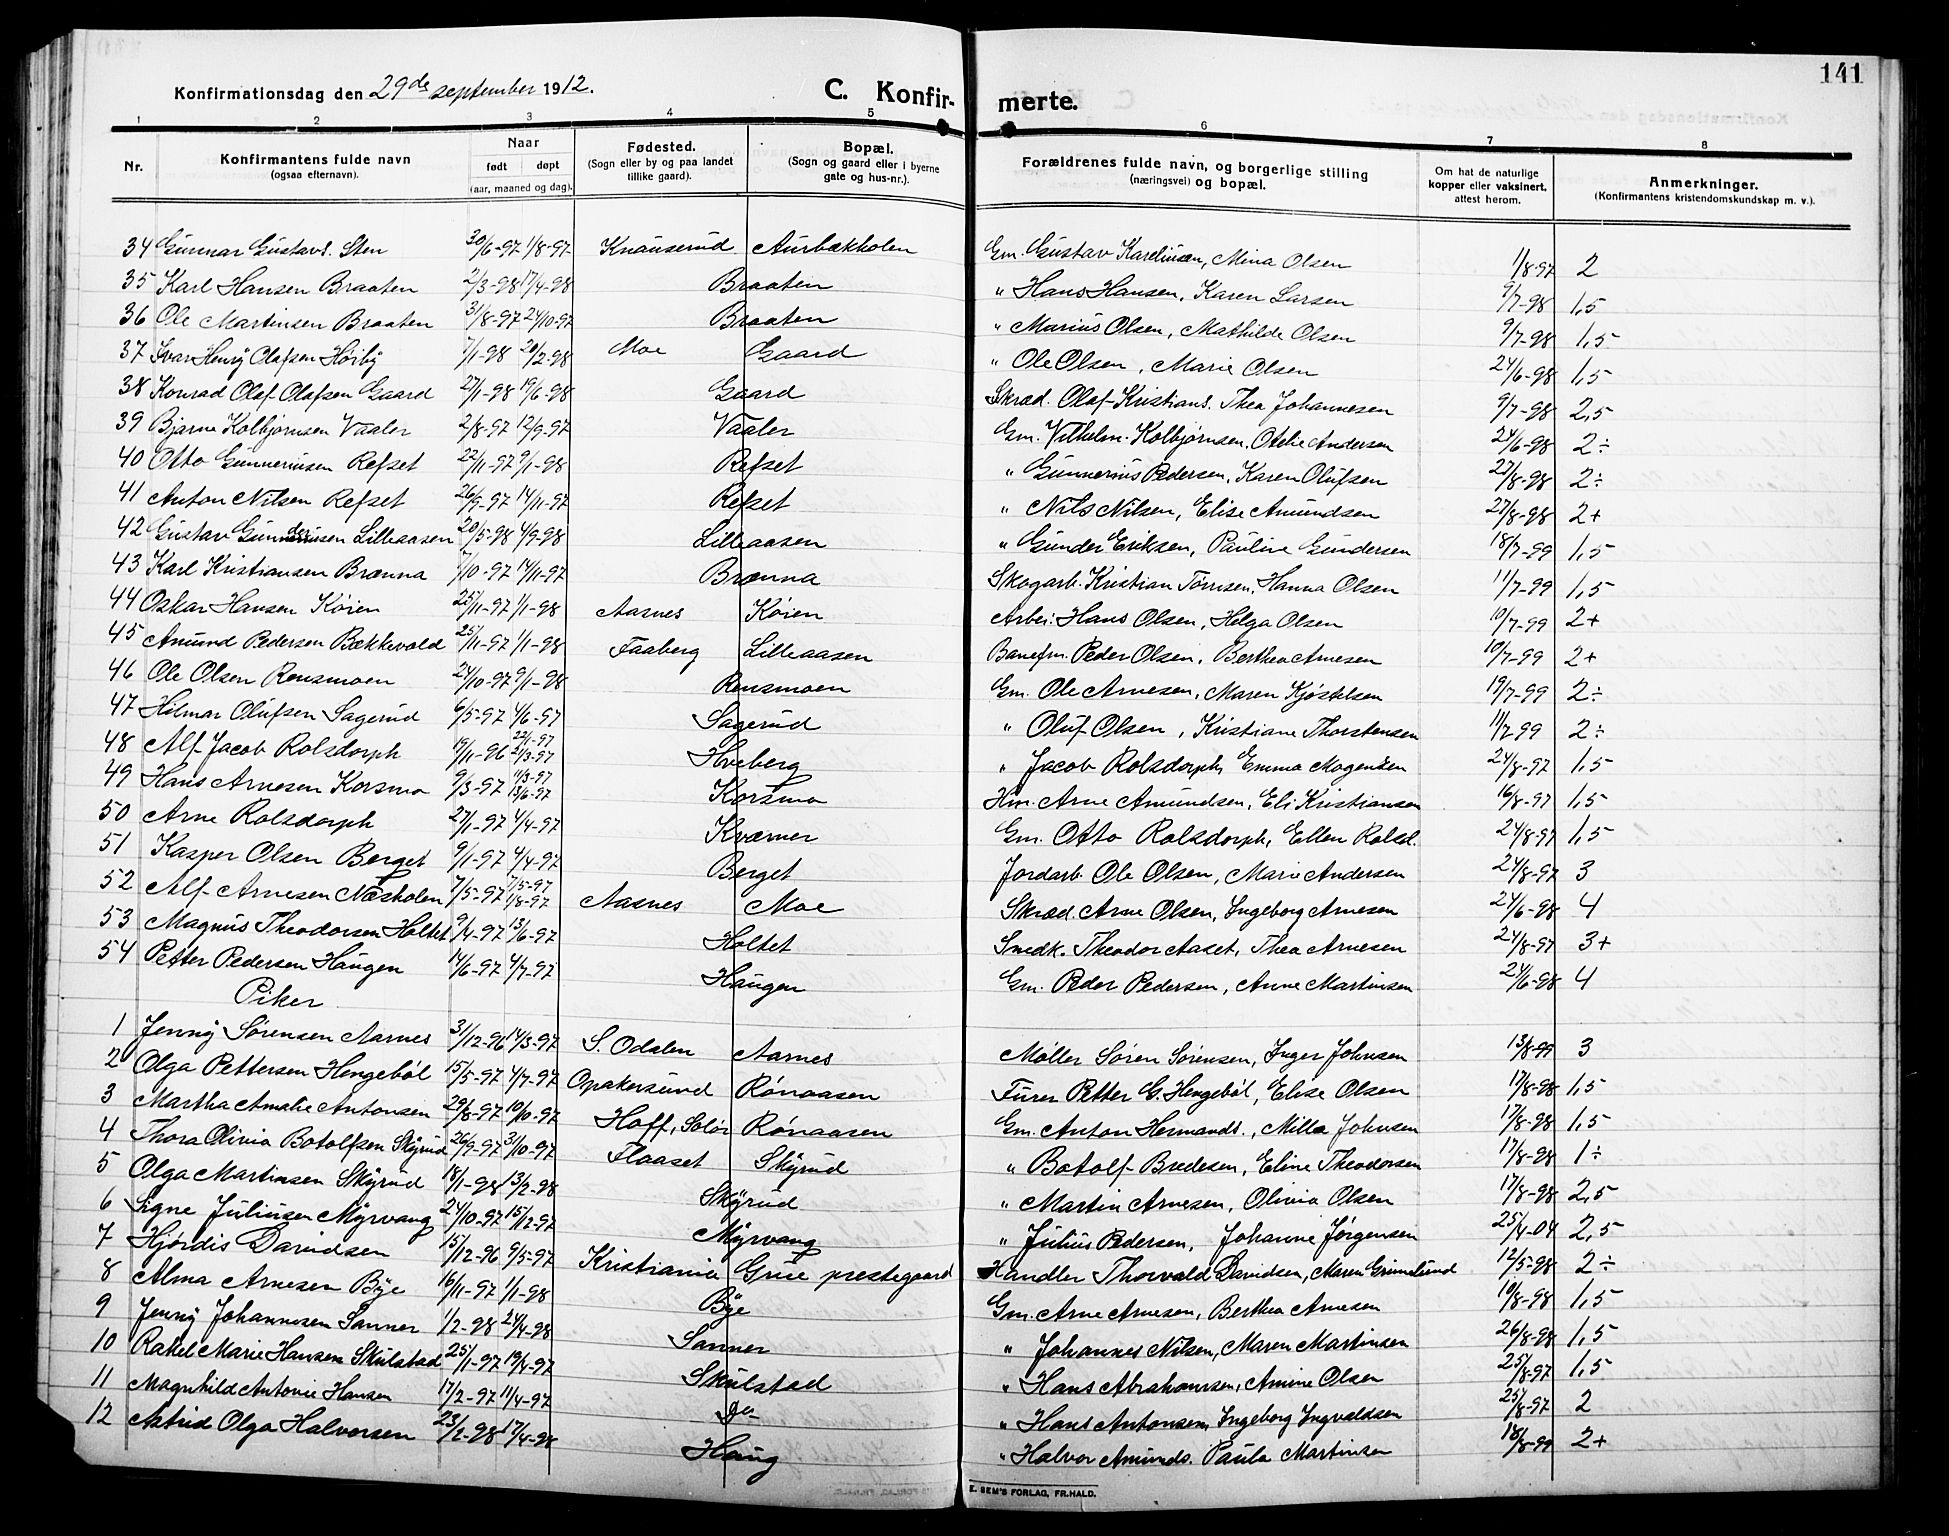 141
Konfirmationsdag den 29de september 1912.
C. Konfir- merte.
1 2 3 4 5 6 7 8
Nr. Konfirmantens fulde navn (ogsaa efternavn). Naar født døpt (aar, maaned og dag). Fødested. (Sogn eller by og paa landet tillike gaard). Bopæl. (Sogn og gaard eller i byerne gate og hus-nr.). Forældrenes fulde navn, og borgerlige stilling (næringsvei) og bopæl. Om hat de naturlige kopper eller vaksinert, attest herom. Anmerkninger. (Konfirmantens kristendomskundskap m. v.).
34 Gunnar Gustavs. Sten 30/6-97 1/8-97 Knauserud Aurbækholen Gm. Gustav Karelinsen, Mina Olsen 1/8-97 2
35 Karl Hansen Braaten 2/3-98 17/4-98 Braaten " Hans Hansen, Karen Larsen 9/7-98 1,5
36 Ole Martinsen Braaten 31/8-97 24/10-97 Braaten " Marius Olsen, Mathilde Olsen 9/7-98 1,5
37 Ivar Henry Olafsen Høiby 7/1-98 20/2-98 Moe Gaard " Ole Olsen, Marie Olsen 24/6-98 1,5
38 Konrad Olaf Olafsen Gaard 27/1-98 19/6-98 Gaard Skræd. Olaf Kristians. Thea Johannesen 9/7-98 2,5
39 Bjarne Kolbjørnsen Vaaler 2/8-97 12/9-97 Vaaler Gm. Vilhelm Kolbjørnsen, Otelie Andersen 24/6-98 2÷
40 Otto Gunneriusen Refset 22/11-97 9/1-98 Refset " Gunnerius Pedersen, Karen Olufsen 27/8-98 2÷
41 Anton Nilsen Refset 26/9-97 14/11-97 Refset " Nils Nilsen, Elise Amundsen 27/8-98 2+
42 Gustav Gundersen Lilleaasen 20/5-98 4/9-98 Lilleaasen " Gunder Eriksen, Pauline Gundersen 18/7-99 1,5
43 Karl Kristiansen Brænna 7/10-97 14/11-97 Brænna Skogarb. Kristian Tørrisen, Hanna Olsen 11/7-99 1,5
44 Oskar Hansen Køien 25/11-97 1/1-98 Aasnes Køien Arbei: Hans Olsen, Helga Olsen 10/7-99 2+
45 Amund Pedersen Bækkevold 25/11-97 1/1-98 Faaberg Lilleaasen Banefm. Peder Olsen, Berthea Arnesen 10/7-99 2+
46 Ole Olsen Rensmoen 24/10-97 9/1-98 Rensmoen Gm. Ole Arnesen, Maren Kjøstelsen 19/7-99 2÷
47 Hilmar Olufsen Sagerud 6/5-97 4/6-97 Sagerud " Oluf Olsen, Kristiane Thorstensen 11/7-99 2÷
48 Alf Jacob Rolsdorph 19/11-96 22/1-97 21/3-97 Hveberg " Jacob Rolsdorph, Emma Mogensen 24/8-97 1,5
49 Hans Arnesen Korsmo 9/3-97 11/3-97 13/6-97 Korsmo Hm. Arne Amundsen, Eli Kristiansen 16/8-97 1,5
50 Arne Rolsdorph 27/1-97 4/4-97 Kværner Gm. Otto Rolsdorph, Ellen Rolsd. 24/8-97 1,5
51 Kasper Olsen Berget 9/1-97 4/4-97 Berget Jordarb. Ole Olsen, Marie Andersen 24/8-97 3
52 Alf Arnesen Næsholen 7/5-97 7/5-97 1/8-97 Aasnes Moe Skræd. Arne Olsen, Ingeborg Arnesen 24/6-98 4
53 Magnus Theodorsen Holtet 9/4-97 13/6-97 Holtet Smedk. Theodor Aaset, Thea Arnesen 24/8-97 3+
54 Petter Pedersen Haugen 14/6-97 4/7-97 Haugen Gm. Peder Pedersen, Anne Martinsen 24/6-98 4
Piker
1 Jenny Sørensen Aarnes 31/12-96 14/3-97 S. Odalen Aarnes Møller Søren Sørensen, Inger Johnsen 13/8-99 3
2 Olga Pettersen Hengebøl 15/5-97 4/7-97 Opakersund Rønaasen Furer Petter G. Hengebøl, Elise Olsen 17/8-98 1,5
3 Martha Amalie Antonsen 29/8-97 10/10-97 Hoff, Solør Rønaasen Gm. Anton Hermands., Milla Johnsen 17/8-98 1,5
4 Thora Olivia Botolfsen Skyrud 26/9-97 31/10-97 Flaaset Skyrud " Botolf Bredesen, Eline Theodorsen 17/8-98 1÷
5 Olga Martinsen Skyrud 18/1-98 13/2-98 Skyrud " Martin Arnesen, Olivia Olsen 17/8-98 2,5
6 Signe Juliusen Myrvang 24/10-97 15/12-97 Myrvang " Julius Pedersen, Johanne Jørgensen 25/4-04 2,5
7 Hjørdis Davidsen 15/12-96 9/5-97 Kristiania Grue prestegaard Handler Thorvald Davidsen, Maren Grimslund 12/5-98 2÷
8 Alma Arnesen Bye 16/11-97 1/1-98 Bye Gm. Arne Arnesen, Berthea Arnesen 10/8-98 1,5
9 Jenny Johannesen Sanner 1/2-98 24/4-98 Sanner " Johannes Nilsen, Maren Martinsen 26/8-98 1,5
10 Rakel Marie Hansen Skulstad 25/1-97 19/4-97 Skulstad " Hans Abrahamsen, Amine Olsen 25/8-97 1,5
11 Magnhild Antonie Hansen 17/2-97 11/4-97 Do " Hans Antonsen, Ingeborg Ingvaldsen 25/8-97 2
12 Astrid Olga Halvorsen 23/2-98 17/4-98 Haug " Halvor Amunds. Paula Martinsen 18/8-99 2+
E. SEM'S FORLAG, FR.HALD.